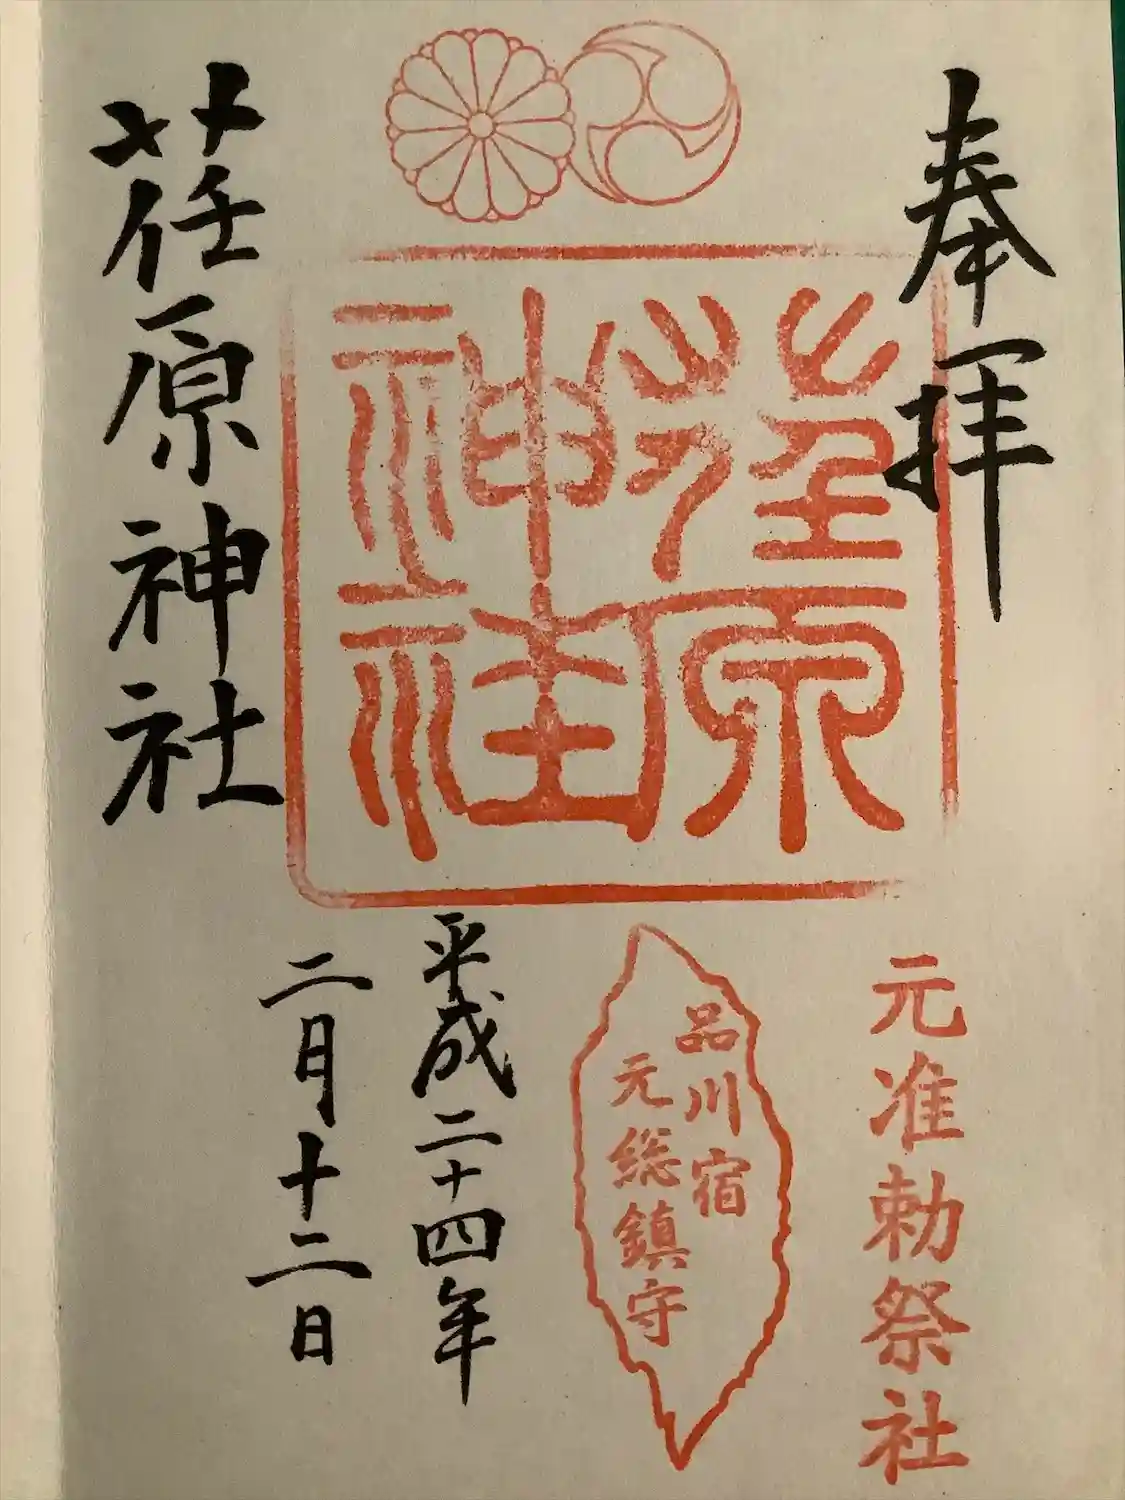 奉拝
元准勅祭社
荏原神社
品川宿
元総鎮守
平成二十四年
二月十二日
荏原神社